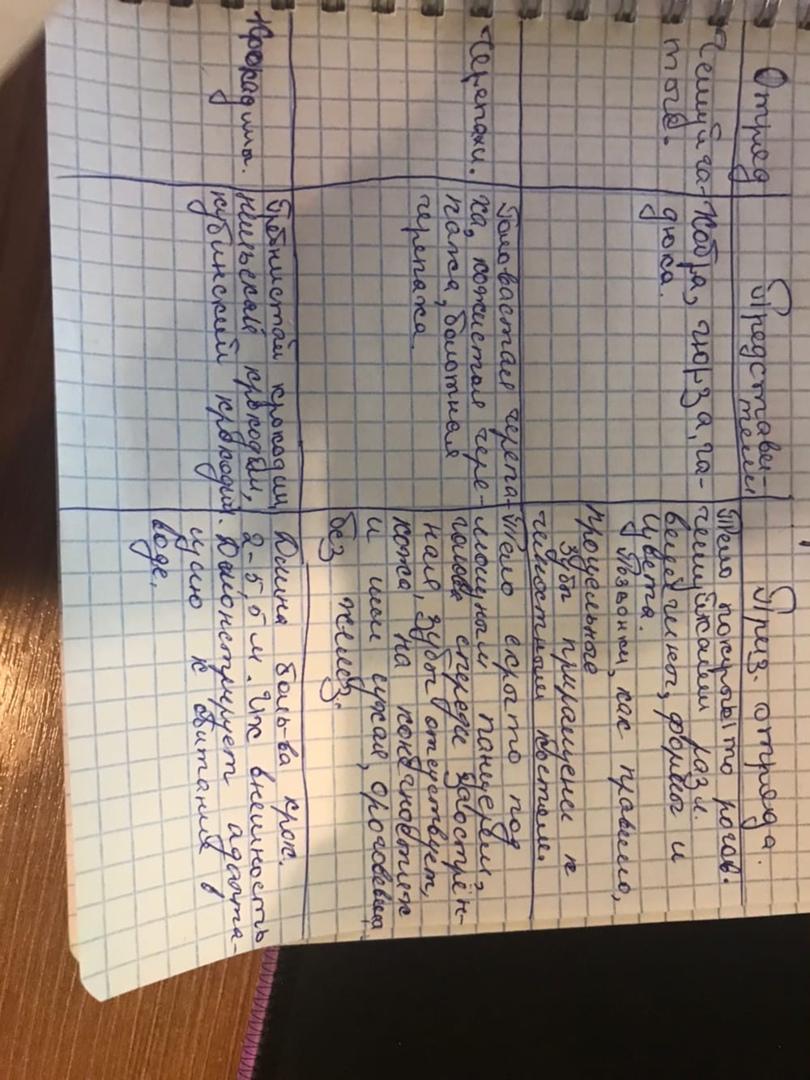 Отряд
Представи-
тели
Приз. отряда.
Чешуйча-
тые.
Кобра, гюрза, га-
дюка.
Тело покрыто рогов.
чешуйками разл.
величины, формы и
цвета.
Позвонки, как правило,
процельные
Зубы приращены к
челюстным костям.
Черепахи.
Головастая черепа-
ха, кожистая чере-
паха, болотная
черепаха.
Тело скрыто под
мощным панцирем,
голова спереди заострён-
ная, зубы отсутствуют,
кожа на конечностях
и шеи сухая, ороговевшая
без желёз.
Крокодилы.
Гребнистый крокодил,
нильский крокодил,
кубинский крокодил.
Длина боль-ва крок.
2-5,5 м. Их внешность
Демонстрирует адапта-
цию к обитанию в
воде.